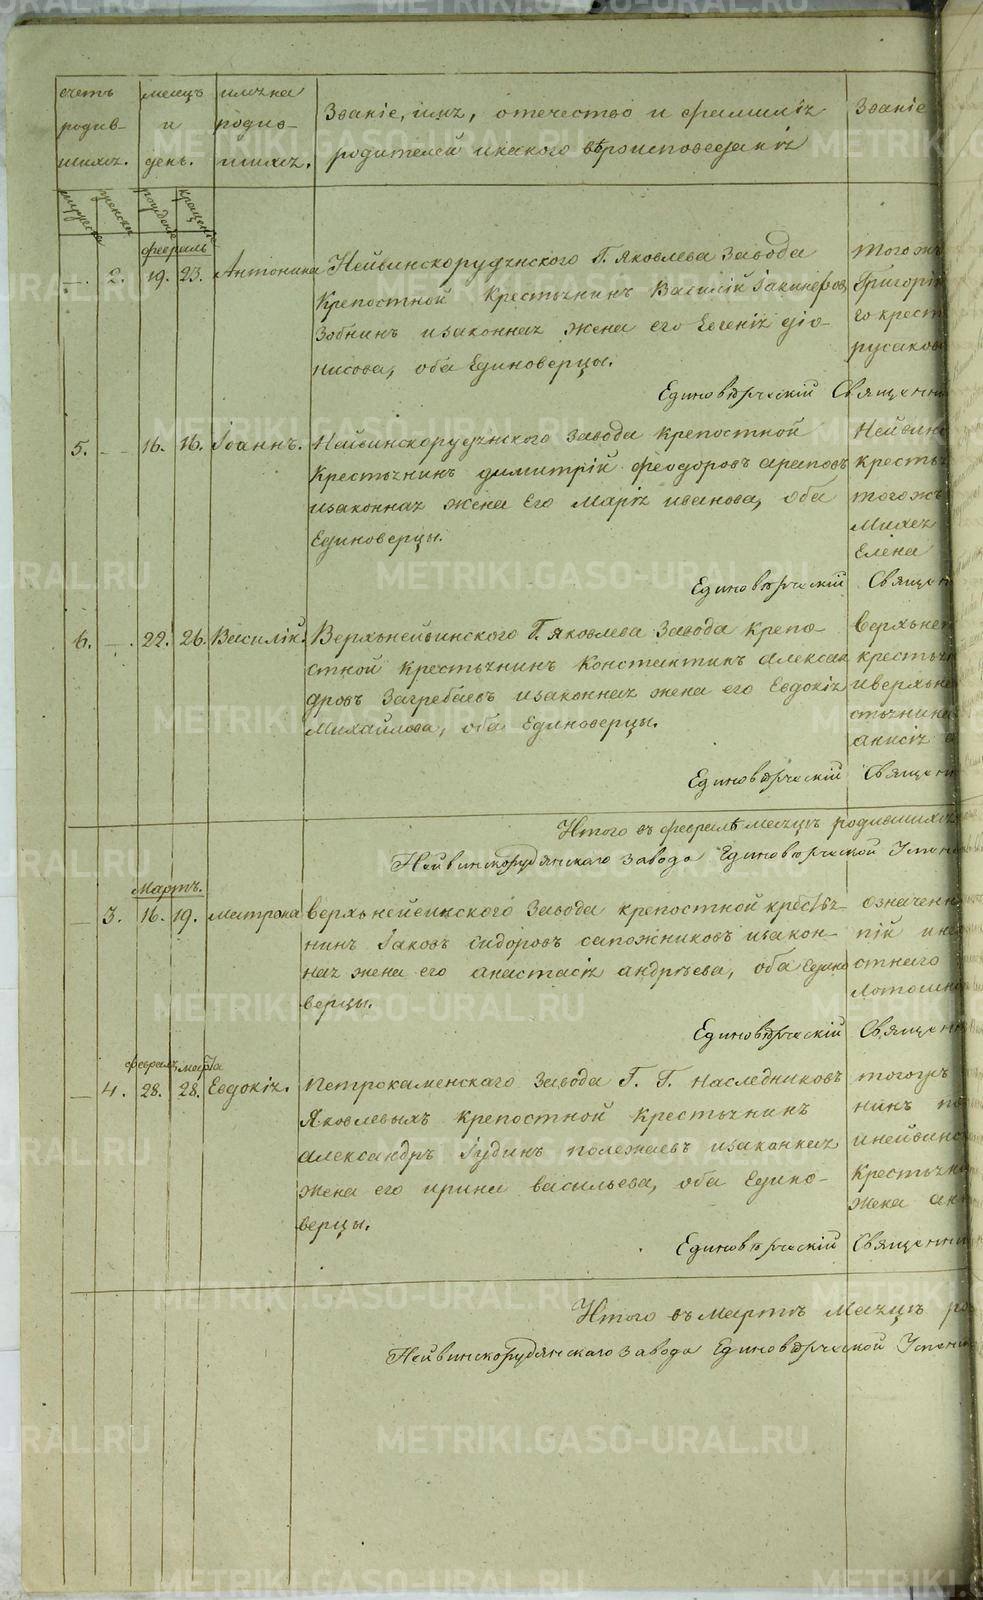 счетъ
родив-
шихся.
месяцъ
и
день.
имяна
родив-
шихся.
Званіе, имя, отечество и фамилія
родителей и какого вѣроисповеданія
Званіе
мужеска
женска
рожденія
крещенія
февраль
2. 19. 23. Антонина Нейвинскорудянского Г. Яковлева Завода
Крепостной Крестьянинъ Василій Іакинфовъ
Зобнинъ изаконная жена его Евгенія діо-
нисова, оба Единоверцы.
того жъ
Григорій
го крест
русакова
Единовѣрческій Священни
5. 16. 16. Іоаннъ. Нейвинскорудянского Завода Крепостной
Крестьянинъ димитрій феодоровъ араповъ
изаконная жена Его Марія иванова, оба
Единоверцы.
Нейвинс
кресть
того жъ
Михея
Елена
Единовѣрческій Священ
6. 22. 26. Василій. Верхънейвинского Г. Яковлева Завода Крепо-
стной Крестьянинъ Константинъ алексан
дровъ Загребаевъ изаконная жена его Евдокія
Михайлова, оба Единоверцы.
верхъней
крестьян
иверхъне
стьянина
анисія
Единовѣрческій Священ
Итого въ февралѣ месяцѣ родившихся
Нейвинскорудянскаго завода Единовѣрческой Успен
Мартъ.
3. 16. 19. матрона верхънейвинского Завода крепостной крестья
нинъ Іаковъ сидоровъ сапожниковъ изакон-
ная жена его анастасія андрѣева, оба Едино
верцы.
означенн
пій
стнаго
Единовѣрческій Священн
февраль марта
4. 28. 28. Евдокія. Петрокаменскаго Завода Г. Г. наследниковъ
Яковлевыхъ крепостной Крестьянинъ
александръ Іудинъ полежаевъ изаконная
жена его ирина васильева, оба Едино-
верцы.
нинъ по
инейвинс
Крестьян
жена
Единовѣрческій Священни
Итого въ Мартѣ Месяцѣ ро
Нейвинскорудянскаго завода Единовѣрческой Успенс
METRIKI.GASO-URAL.RU